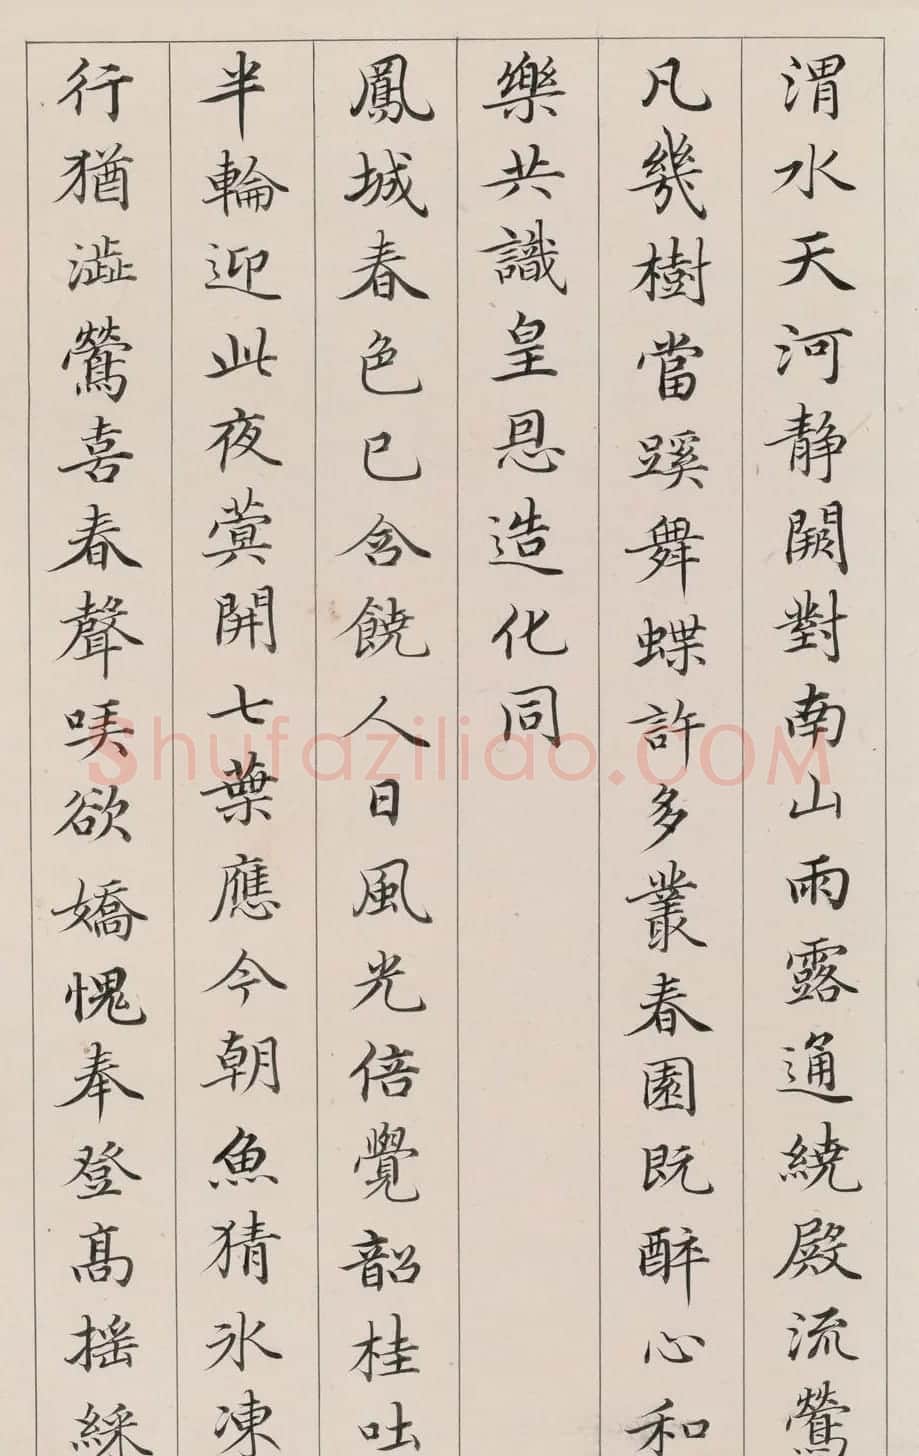 渭水天河静闕對南山雨露通繞殿流鶯
凡幾樹當蹊舞蝶許多叢春園既醉心和
樂共識皇恩造化同
鳳城春色已含饒人日風光倍覺韶桂吐
半輪迎此夜蓂開七葉應今朝魚猜氷凍
行猶澁鶯喜春聲𠴲欲嬌愧奉登髙摇綵
Shufaziliao.COM